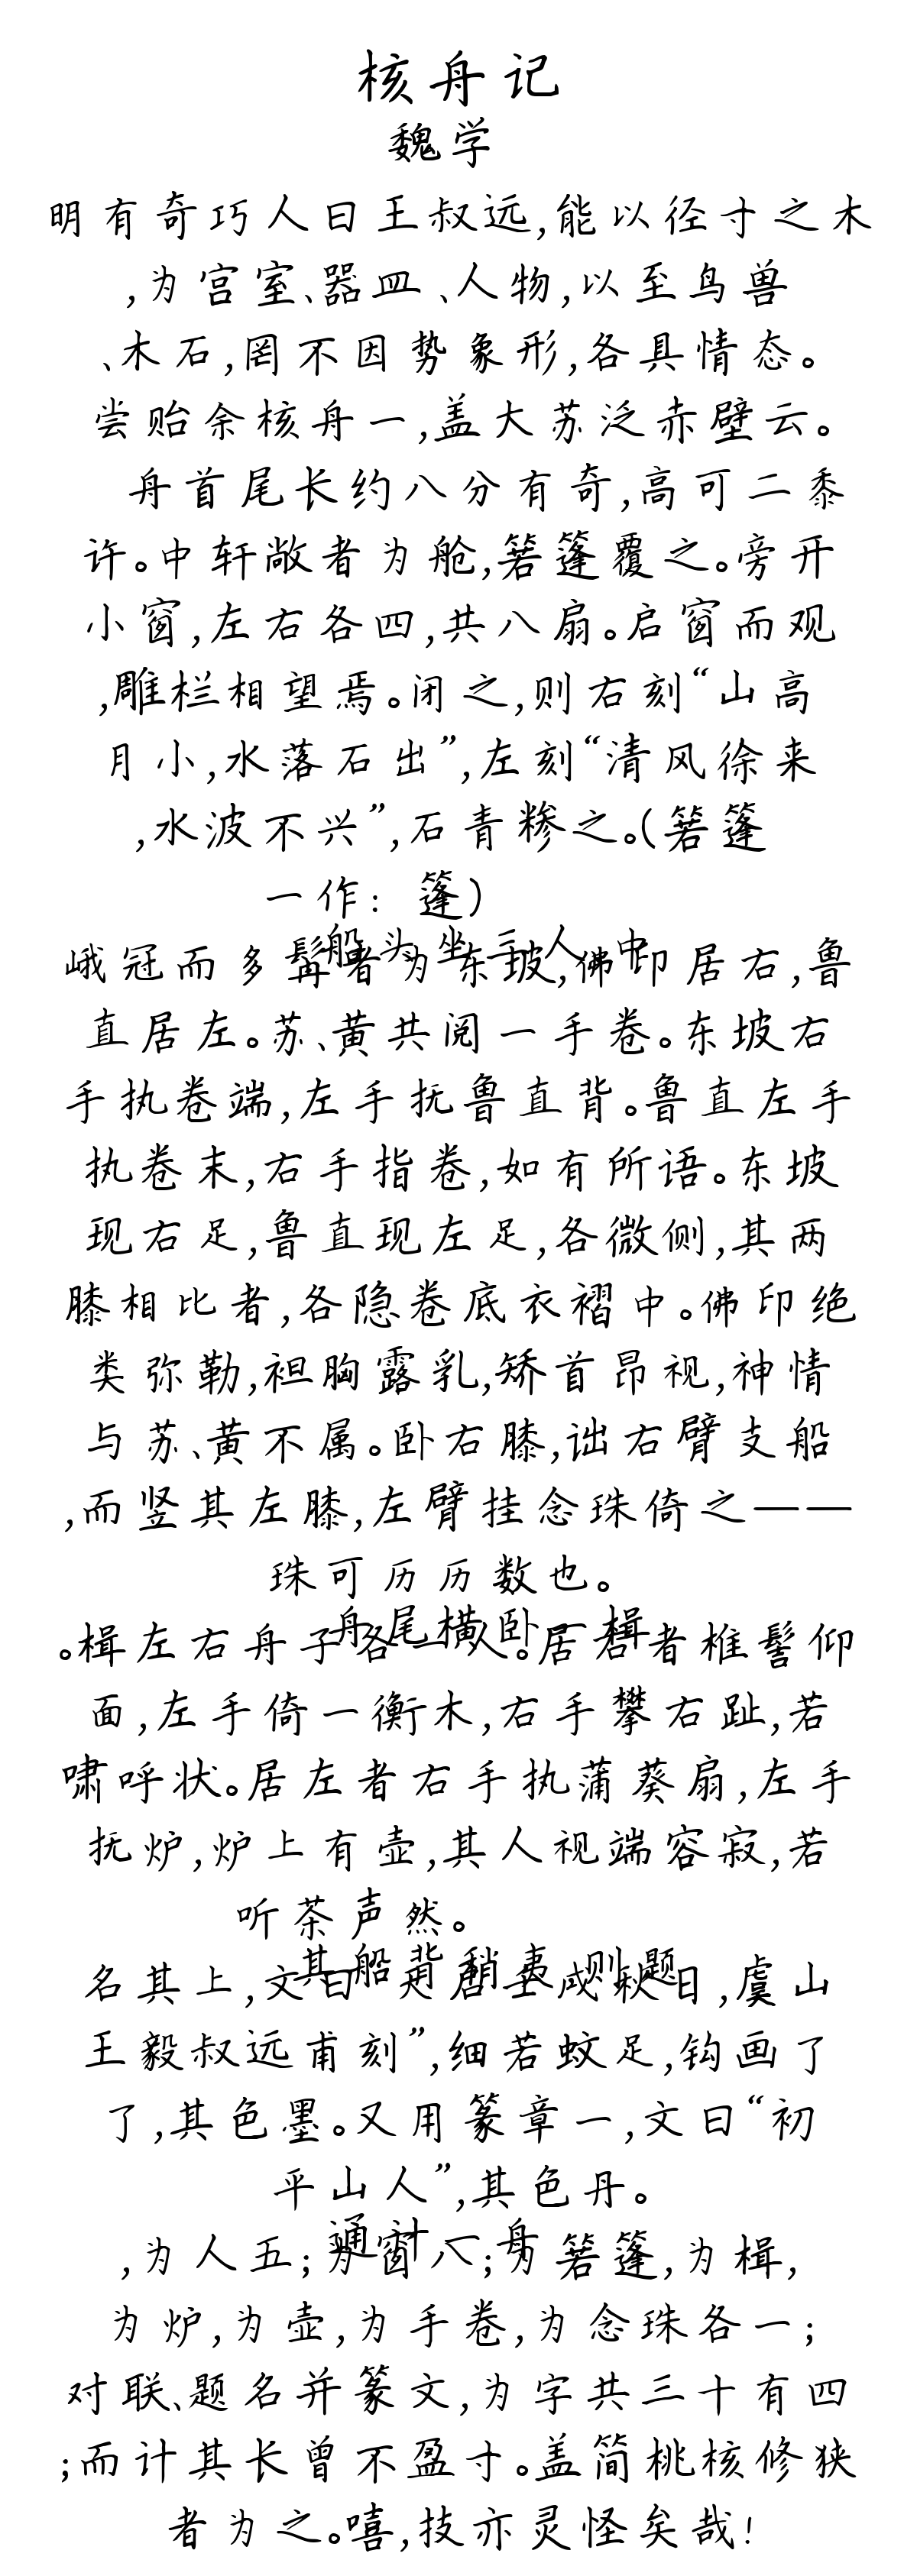 核舟记
魏学
明有奇巧人曰王叔远,能以径寸之木
,为宫室、器皿、人物,以至鸟兽
、木石,罔不因势象形,各具情态。
尝贻余核舟一,盖大苏泛赤壁云。
舟首尾长约八分有奇,高可二黍
许。中轩敞者为舱,箬篷覆之。旁开
小窗,左右各四,共八扇。启窗而观
,雕栏相望焉。闭之,则右刻“山高
月小,水落石出”,左刻“清风徐来
,水波不兴”,石青糁之。(箬篷
一作: 篷)
船头坐三人,中
峨冠而多髯者为东坡,佛印居右,鲁
直居左。苏、黄共阅一手卷。东坡右
手执卷端,左手抚鲁直背。鲁直左手
执卷末,右手指卷,如有所语。东坡
现右足,鲁直现左足,各微侧,其两
膝相比者,各隐卷底衣褶中。佛印绝
类弥勒,袒胸露乳,矫首昂视,神情
与苏、黄不属。卧右膝,诎右臂支船
,而竖其左膝,左臂挂念珠倚之——
珠可历历数也。
舟尾横卧一楫
。楫左右舟子各一人。居右者椎髻仰
面,左手倚一衡木,右手攀右趾,若
啸呼状。居左者右手执蒲葵扇,左手
抚炉,炉上有壶,其人视端容寂,若
听茶声然。
其船背稍夷,则题
名其上,文曰“天启壬戌秋日,虞山
王毅叔远甫刻”,细若蚊足,钩画了
了,其色墨。又用篆章一,文曰“初
平山人”,其色丹。
通计一舟
,为人五;为窗八;为箬篷,为楫,
为炉,为壶,为手卷,为念珠各一;
对联、题名并篆文,为字共三十有四
;而计其长曾不盈寸。盖简桃核修狭
者为之。嘻,技亦灵怪矣哉!